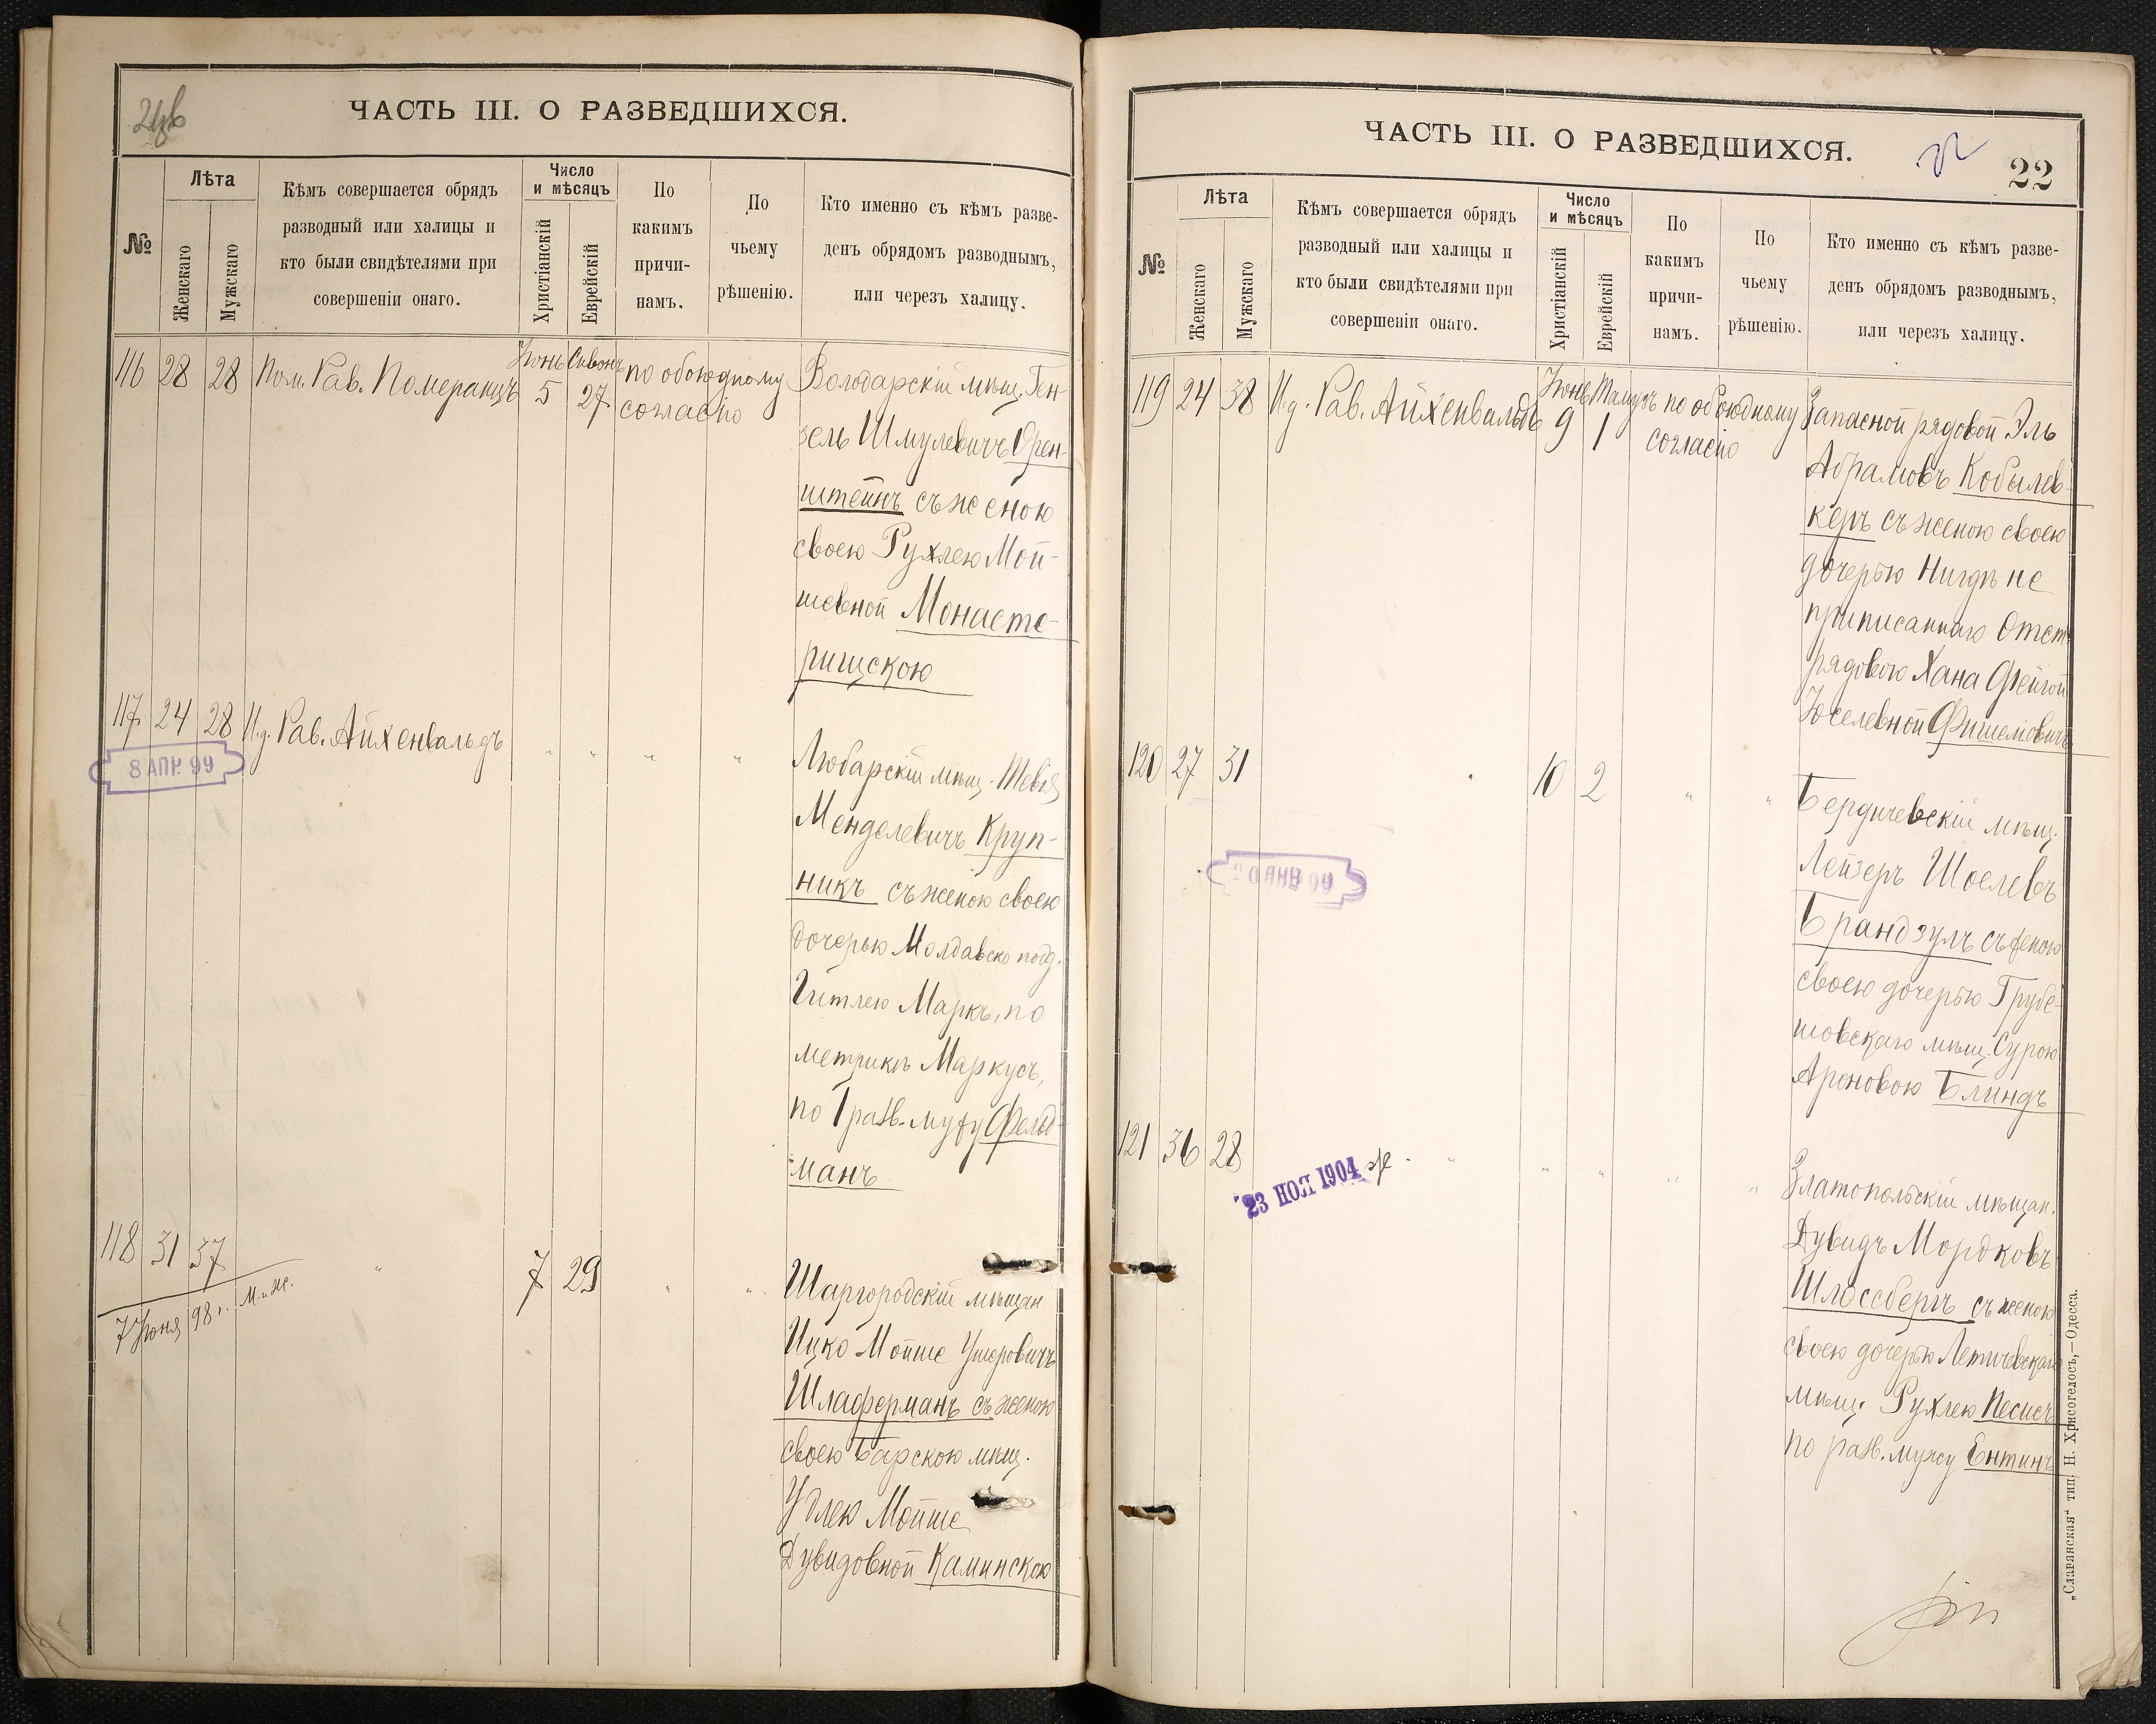 ЧАСТЬ III. О РАЗВЕДШИХСЯ.
№
Лѣта
Женскаго
Мужскаго
Кѣмъ совершается обрядъ
разводный или халицы и
кто были свидѣтелями при
совершеніи онаго.
Число
и мѣсяцъ
Христіанскій
Еврейскій
По
какимъ
причи-
намъ.
По
чьему
рѣшенію.
Кто именно съ кѣмъ разве-
денъ обрядомъ разводнымъ,
или черезъ халицу.
116 28 28 Пом. Рав. Померанцъ Іюнь 5 Сивонъ 27 по обоюдному
согласію
Володарскій мѣщ. Ген-
зель Шмулевичъ Орен-
штейнъ съ женою
своею Рухлею Мой-
шевной Монасте-
рищскою
117 24 28 И.д. Рав. Айхенвальдъ " " " "
8 АПР. 99
Любарскій мѣщ. Тевья
Менделевичъ Круп-
никъ съ женою своею
дочерью Молдавско подд.
Гитлею Маркъ, по
метрикѣ Маркусъ,
по 1 разв. мужу Фельд-
манъ
118 31 37 " 7 29 " "
7 Іюня 98 г. М. и Ж.
Шаргородскій мѣщан
Ицко Мойше Ушеровичъ
Шлаферманъ съ женою
своею Барскою мѣщ.
Удлею Мойше
Дувидовной Каминскою
ЧАСТЬ III. О РАЗВЕДШИХСЯ.
22
№
Лѣта
Женскаго
Мужскаго
Кѣмъ совершается обрядъ
разводный или халицы и
кто были свидѣтелями при
совершеніи онаго.
Число
и мѣсяцъ
Христіанскій
Еврейскій
По
какимъ
причи-
намъ.
По
чьему
рѣшенію.
Кто именно съ кѣмъ разве-
денъ обрядомъ разводнымъ,
или черезъ халицу.
119 24 38 И.д. Рав. Айхенвальдъ Іюнь 9 Тамузъ 1 по обоюдному
согласію
Запасной рядовой Эль
Абрамовъ Кобылев-
керъ съ женою своею
дочерью Нигдѣ не
приписаннаго Отст.
рядового Хана Фейгой
Іоселевной Фишеловичъ
120 27 31 10 2 " "
20 ЯНВ 99
Бердичевскій мѣщ.
Лейзеръ Шоелевъ
Брандзулъ съ женою
своею дочерью Грубе-
шовскаго мѣщ. Сурою
Ароновою Блиндъ
121 36 28 " " " " "
23 НОЯ 1904
Златопольскій мѣщан.
Дувидъ Мордковъ
Шлоссбергъ съ женою
своею дочерью Летичевскаго
мѣщ. Рухлею Песисъ
по разв. мужу Ентинъ
„Славянская" тип. Н. Хрисогелосъ,—Одесса.